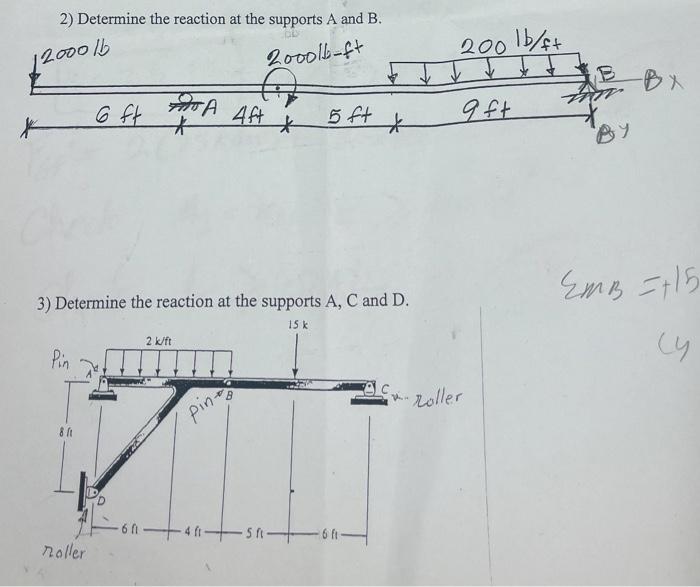 2) Determine the reaction at the supports A and B.
2000 lb
2000 lb-ft
200 lb/ft
B
Bx
6 ft
A
4ft
5 ft
9 ft
By
3) Determine the reaction at the supports A, C and D.
ΣMB = +15
Cy
15 k
2 k/ft
Pin
A
pin
B
C
roller
8 ft
D
6 ft
4 ft
5 ft
6 ft
roller